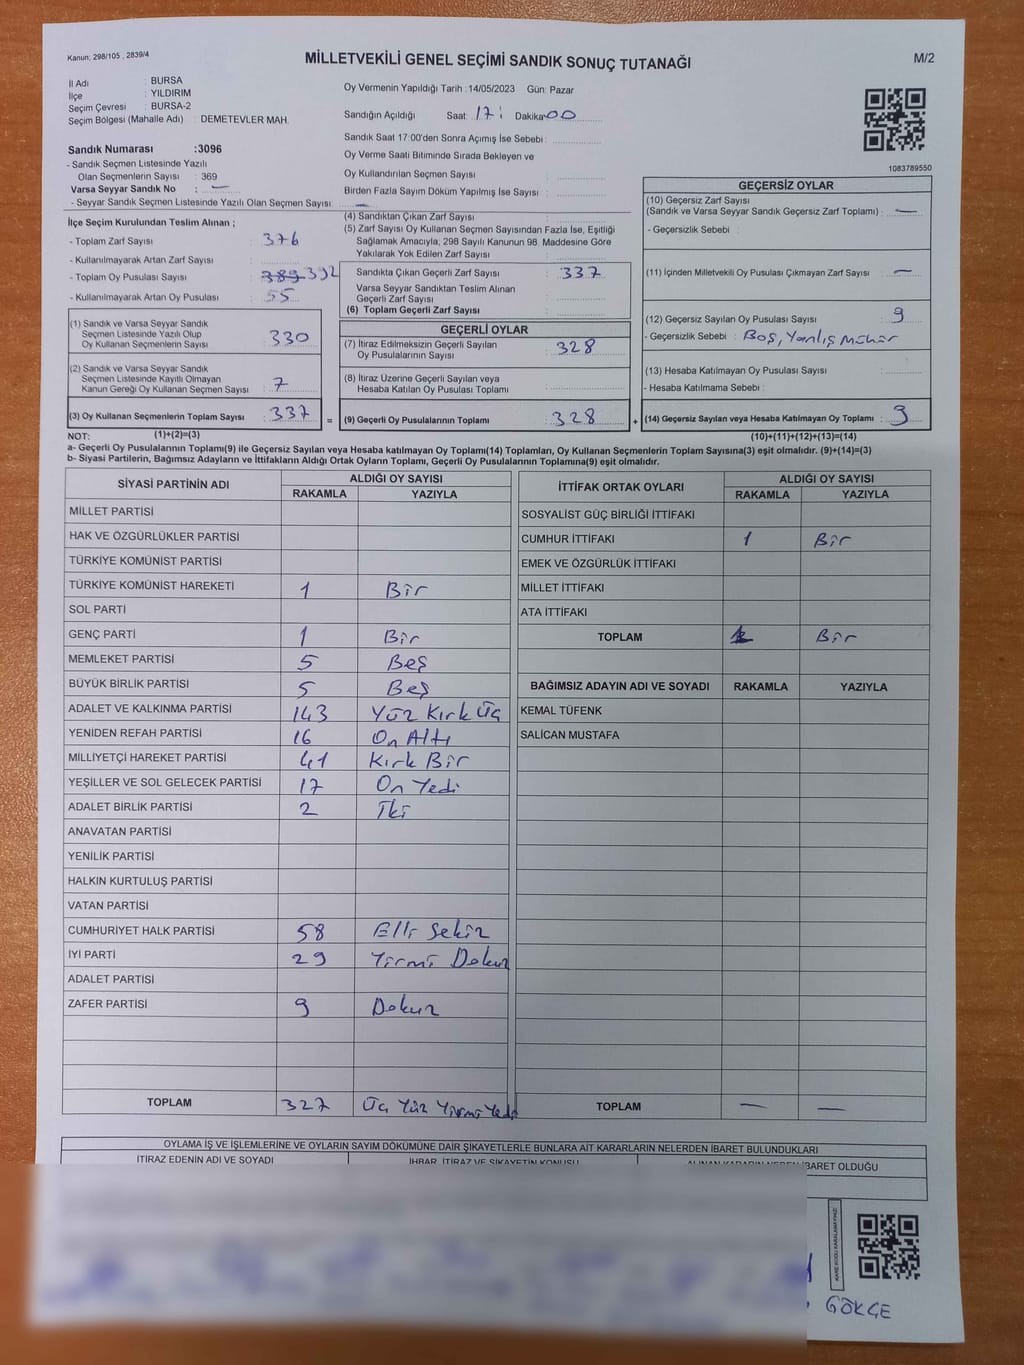 Kanun, 298/105 , 2839/4
MİLLETVEKİLİ GENEL SEÇİMİ SANDIK SONUÇ TUTANAĞI
M/2
İl Adı : BURSA
İlçe : YILDIRIM
Seçim Çevresi : BURSA-2
Seçim Bölgesi (Mahalle Adı) : DEMETEVLER MAH.
Oy Vermenin Yapıldığı Tarih :14/05/2023 Gün: Pazar
Sandığın Açıldığı Saat: 17: Dakika 00
Sandık Saat 17:00'den Sonra Açımış İse Sebebi :
Oy Verme Saati Bitiminde Sırada Bekleyen ve
Oy Kullandırılan Seçmen Sayısı :
Birden Fazla Sayım Döküm Yapılmış İse Sayısı :
1083789550
Sandık Numarası :3096
- Sandık Seçmen Listesinde Yazılı
Olan Seçmenlerin Sayısı : 369
Varsa Seyyar Sandık No : —
- Seyyar Sandık Seçmen Listesinde Yazılı Olan Seçmen Sayısı: —
İlçe Seçim Kurulundan Teslim Alınan ;
- Toplam Zarf Sayısı : 376
- Kullanılmayarak Artan Zarf Sayısı :
- Toplam Oy Pusulası Sayısı : 389 392
- Kullanılmayarak Artan Oy Pusulası : 55
(1) Sandık ve Varsa Seyyar Sandık
Seçmen Listesinde Yazılı Olup
Oy Kullanan Seçmenlerin Sayısı : 330
(2) Sandık ve Varsa Seyyar Sandık
Seçmen Listesinde Kayıtlı Olmayan
Kanun Gereği Oy Kullanan Seçmen Sayısı : 7
(3) Oy Kullanan Seçmenlerin Toplam Sayısı : 337
(1)+(2)=(3)
(4) Sandıktan Çıkan Zarf Sayısı :
(5) Zarf Sayısı Oy Kullanan Seçmen Sayısından Fazla İse, Eşitliği
Sağlamak Amacıyla, 298 Sayılı Kanunun 98. Maddesine Göre
Yakılarak Yok Edilen Zarf Sayısı :
Sandıkta Çıkan Geçerli Zarf Sayısı : 337
Varsa Seyyar Sandıktan Teslim Alınan
Geçerli Zarf Sayısı :
(6) Toplam Geçerli Zarf Sayısı :
GEÇERLİ OYLAR
(7) İtiraz Edilmeksizin Geçerli Sayılan
Oy Pusulalarının Sayısı : 328
(8) İtiraz Üzerine Geçerli Sayılan veya
Hesaba Katılan Oy Pusulası Toplamı :
= (9) Geçerli Oy Pusulalarının Toplamı : 328 +
GEÇERSİZ OYLAR
(10) Geçersiz Zarf Sayısı
(Sandık ve Varsa Seyyar Sandık Geçersiz Zarf Toplamı) : —
- Geçersizlik Sebebi :
(11) İçinden Milletvekili Oy Pusulası Çıkmayan Zarf Sayısı : —
(12) Geçersiz Sayılan Oy Pusulası Sayısı : 9
- Geçersizlik Sebebi : Boş, Yanlış Mühür
(13) Hesaba Katılmayan Oy Pusulası Sayısı :
- Hesaba Katılmama Sebebi :
(14) Geçersiz Sayılan veya Hesaba Katılmayan Oy Toplamı : 9
(10)+(11)+(12)+(13)=(14)
NOT:
a- Geçerli Oy Pusulalarının Toplamı(9) ile Geçersiz Sayılan veya Hesaba katılmayan Oy Toplamı(14) Toplamları, Oy Kullanan Seçmenlerin Toplam Sayısına(3) eşit olmalıdır. (9)+(14)=(3)
b- Siyasi Partilerin, Bağımsız Adayların ve İttifakların Aldığı Ortak Oyların Toplamı, Geçerli Oy Pusulalarının Toplamına(9) eşit olmalıdır.
SİYASİ PARTİNİN ADI ALDIĞI OY SAYISI
RAKAMLA YAZIYLA
MİLLET PARTİSİ
HAK VE ÖZGÜRLÜKLER PARTİSİ
TÜRKİYE KOMÜNİST PARTİSİ
TÜRKİYE KOMÜNİST HAREKETİ 1 Bir
SOL PARTİ
GENÇ PARTİ 1 Bir
MEMLEKET PARTİSİ 5 Beş
BÜYÜK BİRLİK PARTİSİ 5 Beş
ADALET VE KALKINMA PARTİSİ 143 Yüz Kırk Üç
YENİDEN REFAH PARTİSİ 16 On Altı
MİLLİYETÇİ HAREKET PARTİSİ 41 Kırk Bir
YEŞİLLER VE SOL GELECEK PARTİSİ 17 On Yedi
ADALET BİRLİK PARTİSİ 2 İki
ANAVATAN PARTİSİ
YENİLİK PARTİSİ
HALKIN KURTULUŞ PARTİSİ
VATAN PARTİSİ
CUMHURİYET HALK PARTİSİ 58 Elli Sekiz
İYİ PARTİ 29 Yirmi Dokuz
ADALET PARTİSİ
ZAFER PARTİSİ 9 Dokuz
TOPLAM 327 Üç Yüz Yirmi Yedi
İTTİFAK ORTAK OYLARI ALDIĞI OY SAYISI
RAKAMLA YAZIYLA
SOSYALİST GÜÇ BİRLİĞİ İTTİFAKI
CUMHUR İTTİFAKI 1 Bir
EMEK VE ÖZGÜRLÜK İTTİFAKI
MİLLET İTTİFAKI
ATA İTTİFAKI
TOPLAM 1 Bir
BAĞIMSIZ ADAYIN ADI VE SOYADI RAKAMLA YAZIYLA
KEMAL TÜFENK
SALİCAN MUSTAFA
TOPLAM — —
OYLAMA İŞ VE İŞLEMLERİNE VE OYLARIN SAYIM DÖKÜMÜNE DAİR ŞİKAYETLERLE BUNLARA AİT KARARLARIN NELERDEN İBARET BULUNDUKLARI
İTİRAZ EDENİN ADI VE SOYADI İHBAR, İTİRAZ VE ŞİKAYETİN KONUSU ALINAN KARARIN NEDEN İBARET OLDUĞU
KARE KODU KARALAMAYINIZ!
GÖKÇE